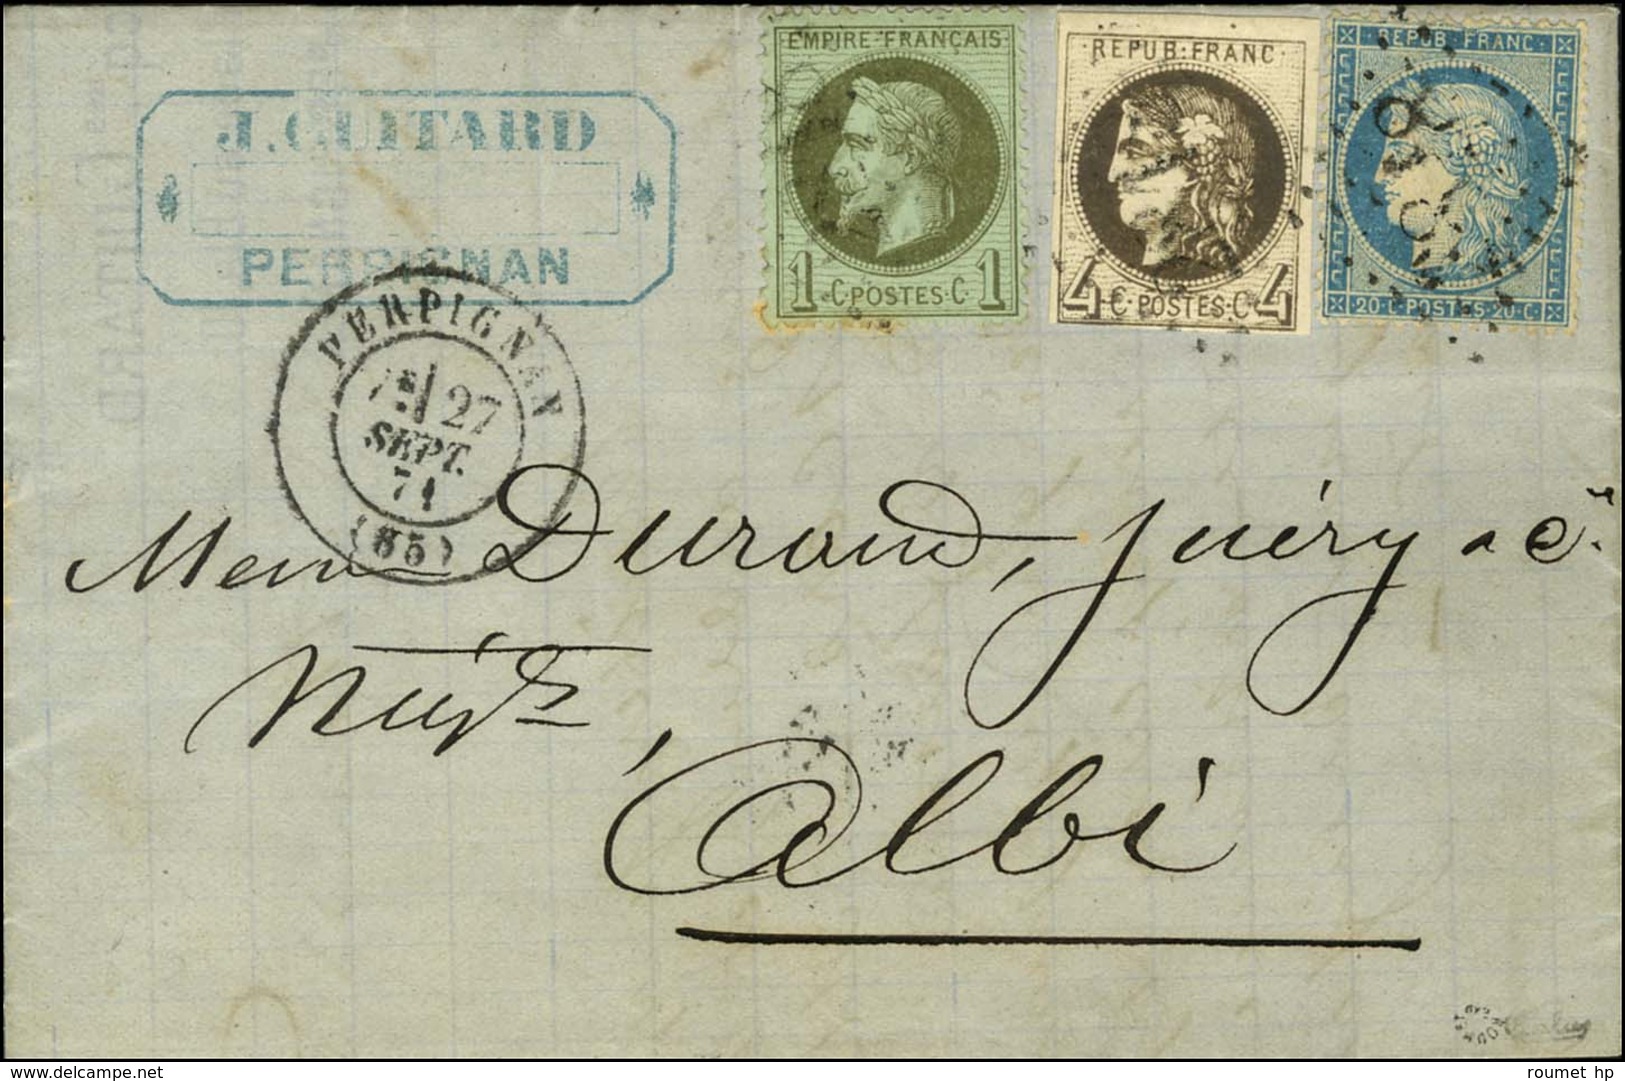 J. GUITARD
PERPIGNAN
EMPIRE FRANÇAIS
1 C. POSTES C. 1
REPUB. FRANC.
4 C. POSTES C. 4
REPUB. FRANC.
20 C. POSTES 20 C.
2818
PERPIGNAN
1E 27
SEPT.
71
(65)
Durand, Juéry & Cie
Négts,
Albi
roumet hp